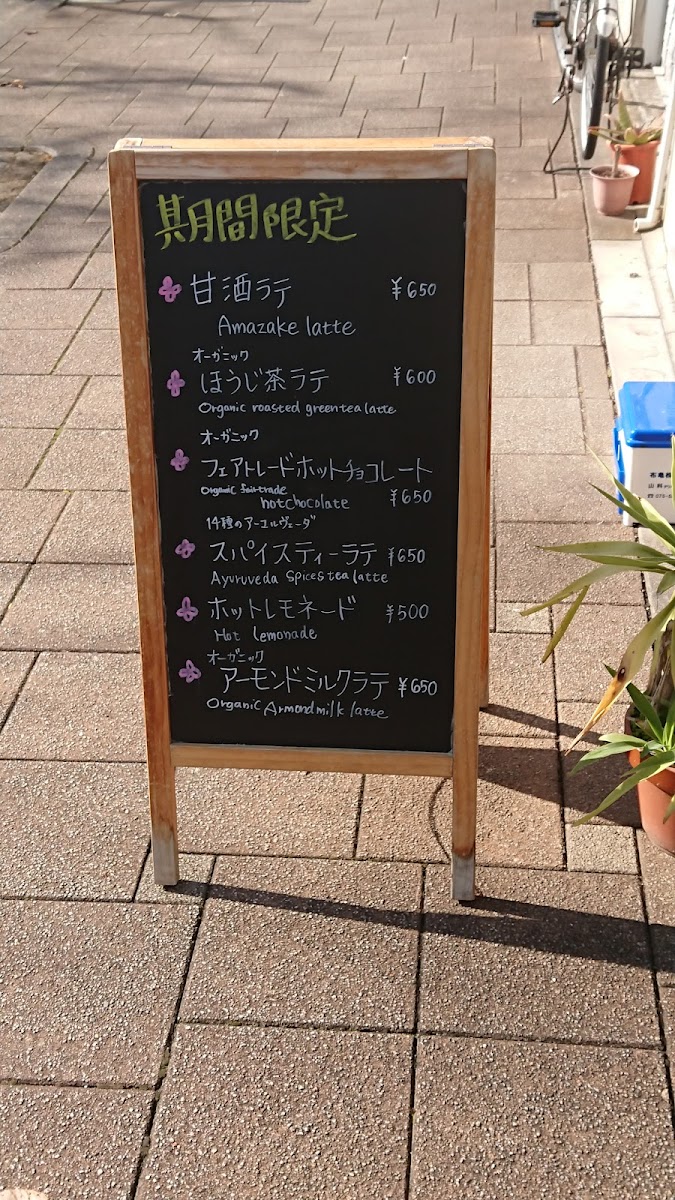 期間限定
甘酒ラテ ¥650
Amazake latte
オーガニック
ほうじ茶ラテ ¥600
Organic roasted greentea latte
オーガニック
フェアトレードホットチョコレート
Organic fairtrade
hotchocolate ¥650
14種のアーユルヴェーダ
スパイスティーラテ ¥650
Ayuruveda Spicestea latte
ホットレモネード ¥500
Hot lemonade
オーガニック
アーモンドミルクラテ ¥650
Organic Armondmilk latte